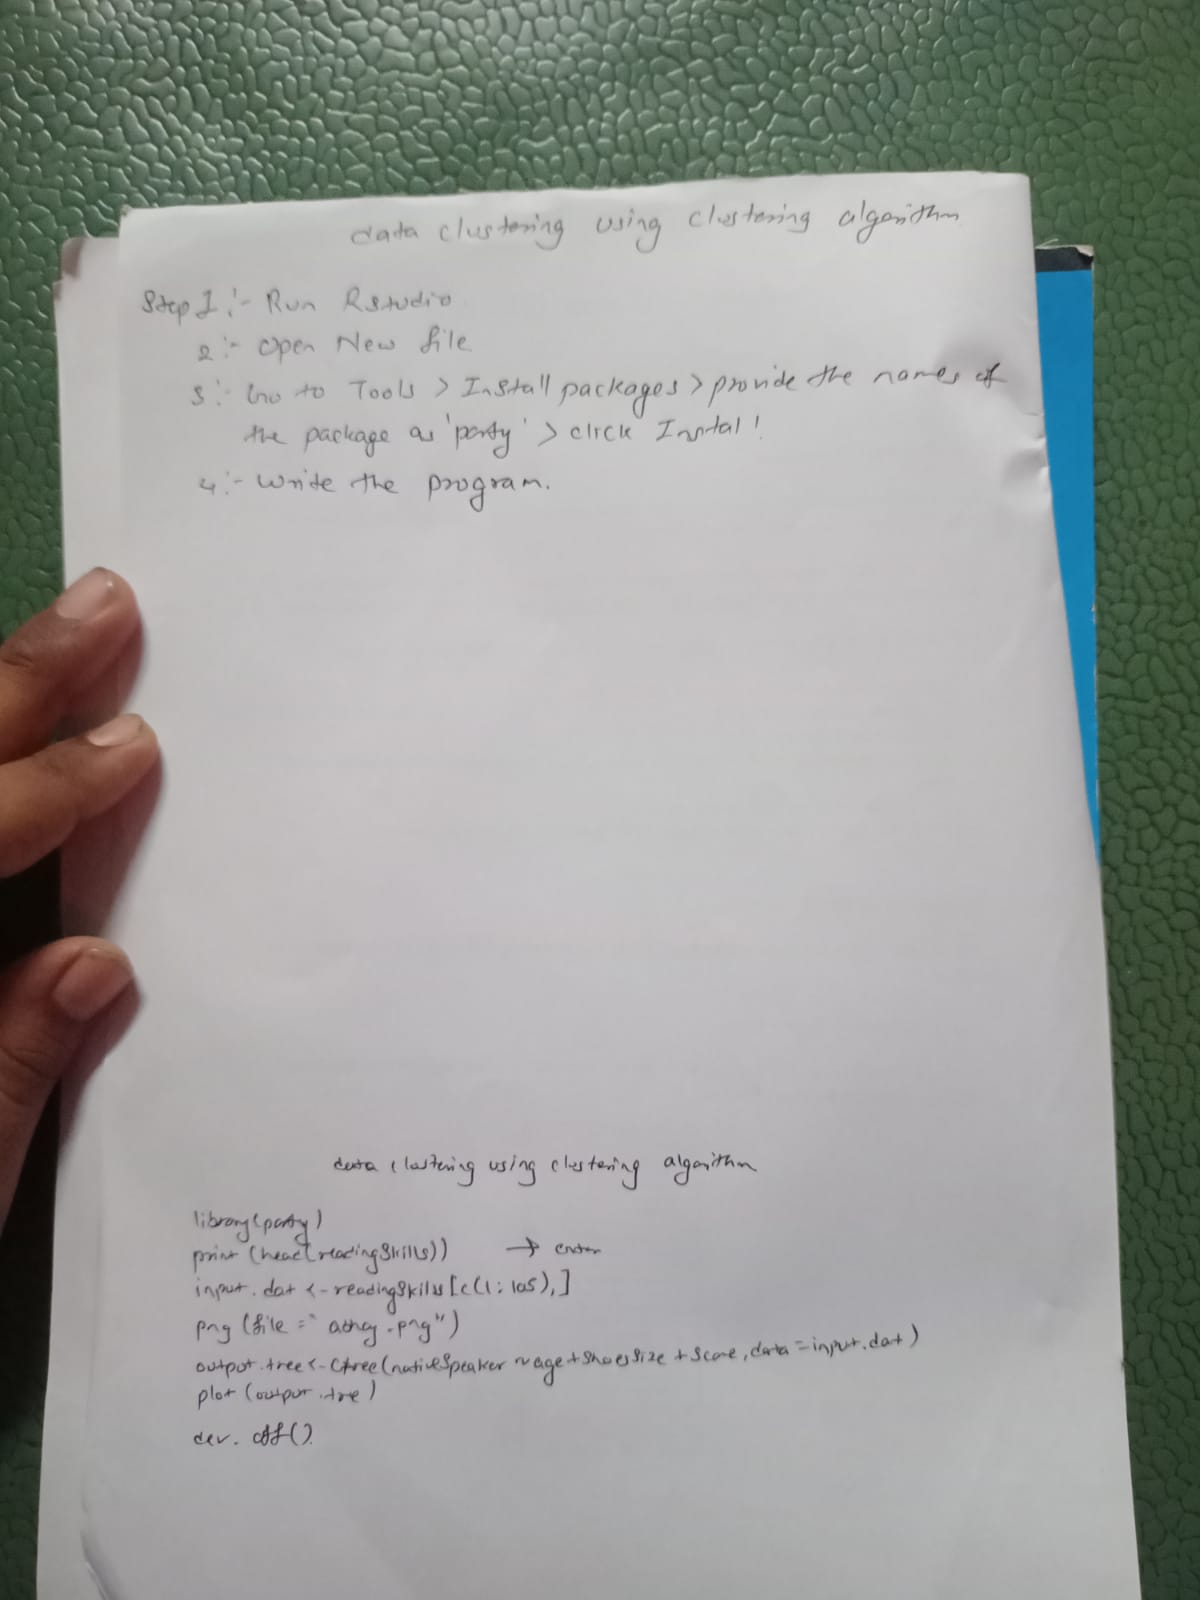 data clustering using clustering algorithm
Step 1 :- Run Rstudio
2 :- Open New file
3 :- Go to Tools > Install packages > provide the names of
the package as 'party' > click Instal!
4 :- Write the program.
data clustering using clustering algorithm
library(party)
print (head(readingSkills)) → enter
input.dat <- readingSkills[c(1:105),]
png (file = " .png")
output.tree <- Ctree(nativeSpeaker ~ age + ShoesSize + Score, data = input.dat)
plot (output.tre)
dev. off()